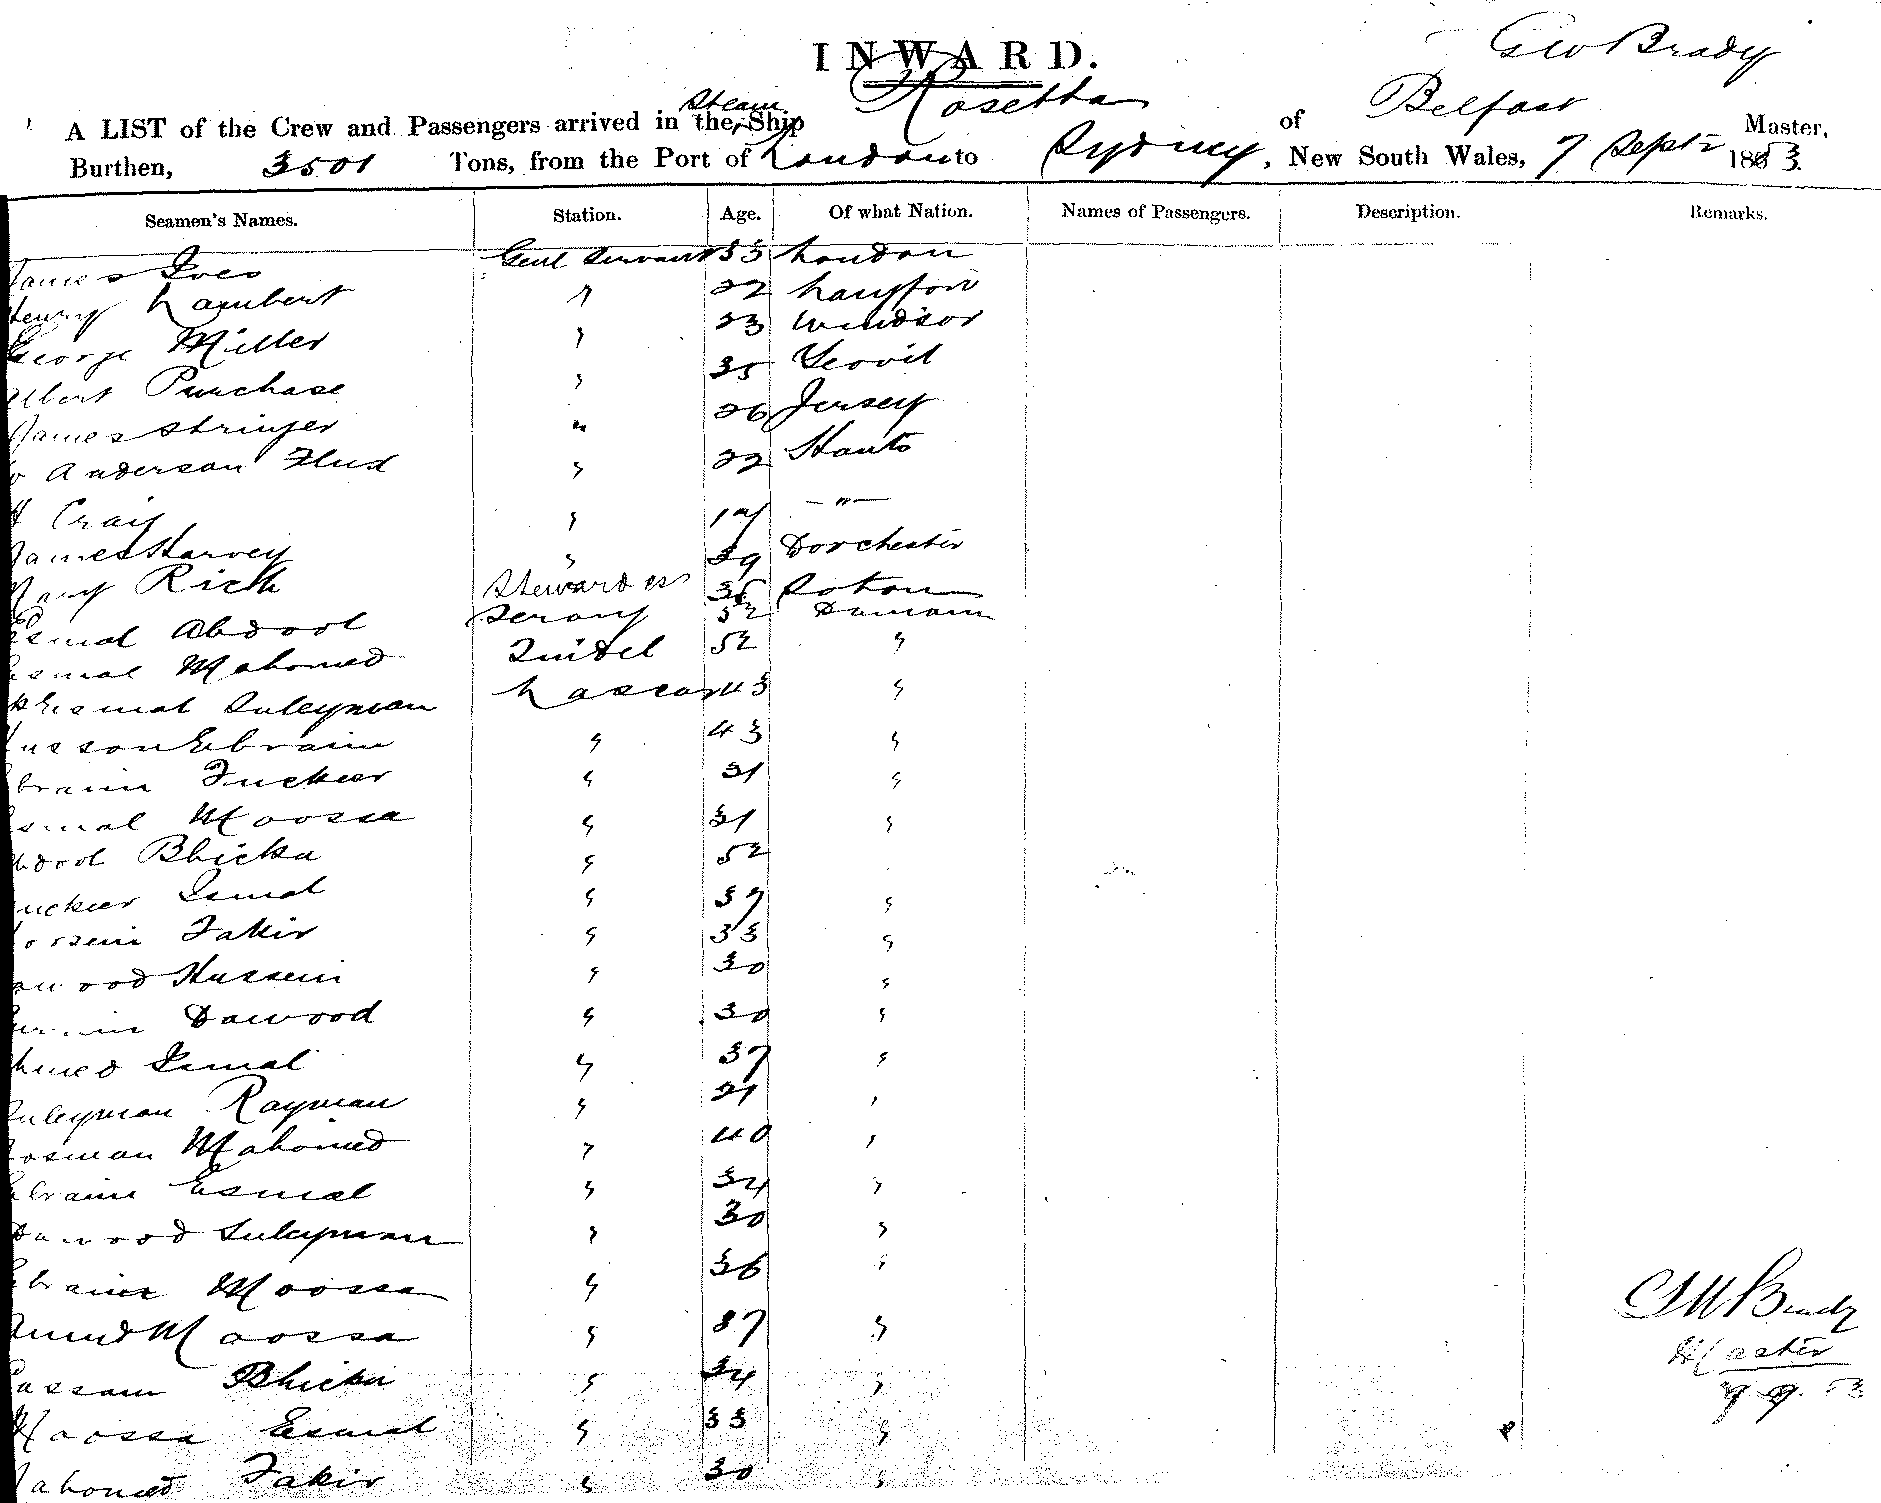 INWARD.
Geo Brady
A LIST of the Crew and Passengers arrived in the Steam Ship Rosetta of Belfast Master,
Burthen, 3501 Tons, from the Port of London to Sydney, New South Wales, 7 Sept 1883.
Seamen's Names. Station. Age. Of what Nation. Names of Passengers. Description. Remarks.
James Ives Genl Servant 33 London
Henry Lambert " 22
George Miller " 23 Windsor
Albert Purchase " 35 Yeovil
James Stringer " 26 Jersey
Anderson " 22 Hants
Craig " 17 — " —
James Harvey " 39 Dorchester
Mary Rich Stewardess Soton
Esmal Abdool Serang 52 Damaun
Esmal Mahomed Tindel 52 "
Esmal Suleyman Lascar 43 "
Husson Ebraim " 43 "
Ebraim Fuckeer " 31 "
Esmal Moossa " 31 "
Abdool Bhicka " 52
Fuckeer Esmal " 37 "
Hossein Fakir " 33 "
Dawood Hussein " 30 "
Dawood " 30 "
Ahmed Esmal " 37 "
Suleyman Rayman " 21 "
Mahomed " 40 "
Ebraim Esmal " 34 "
Dawood Suleyman " 30 "
Ebraim Moossa " 36 "
Moossa " 37 "
Cassam Bhicka " 34 "
Moossa Esmal " 33 "
Mahomed Fakir " 30 "
Brady
Master